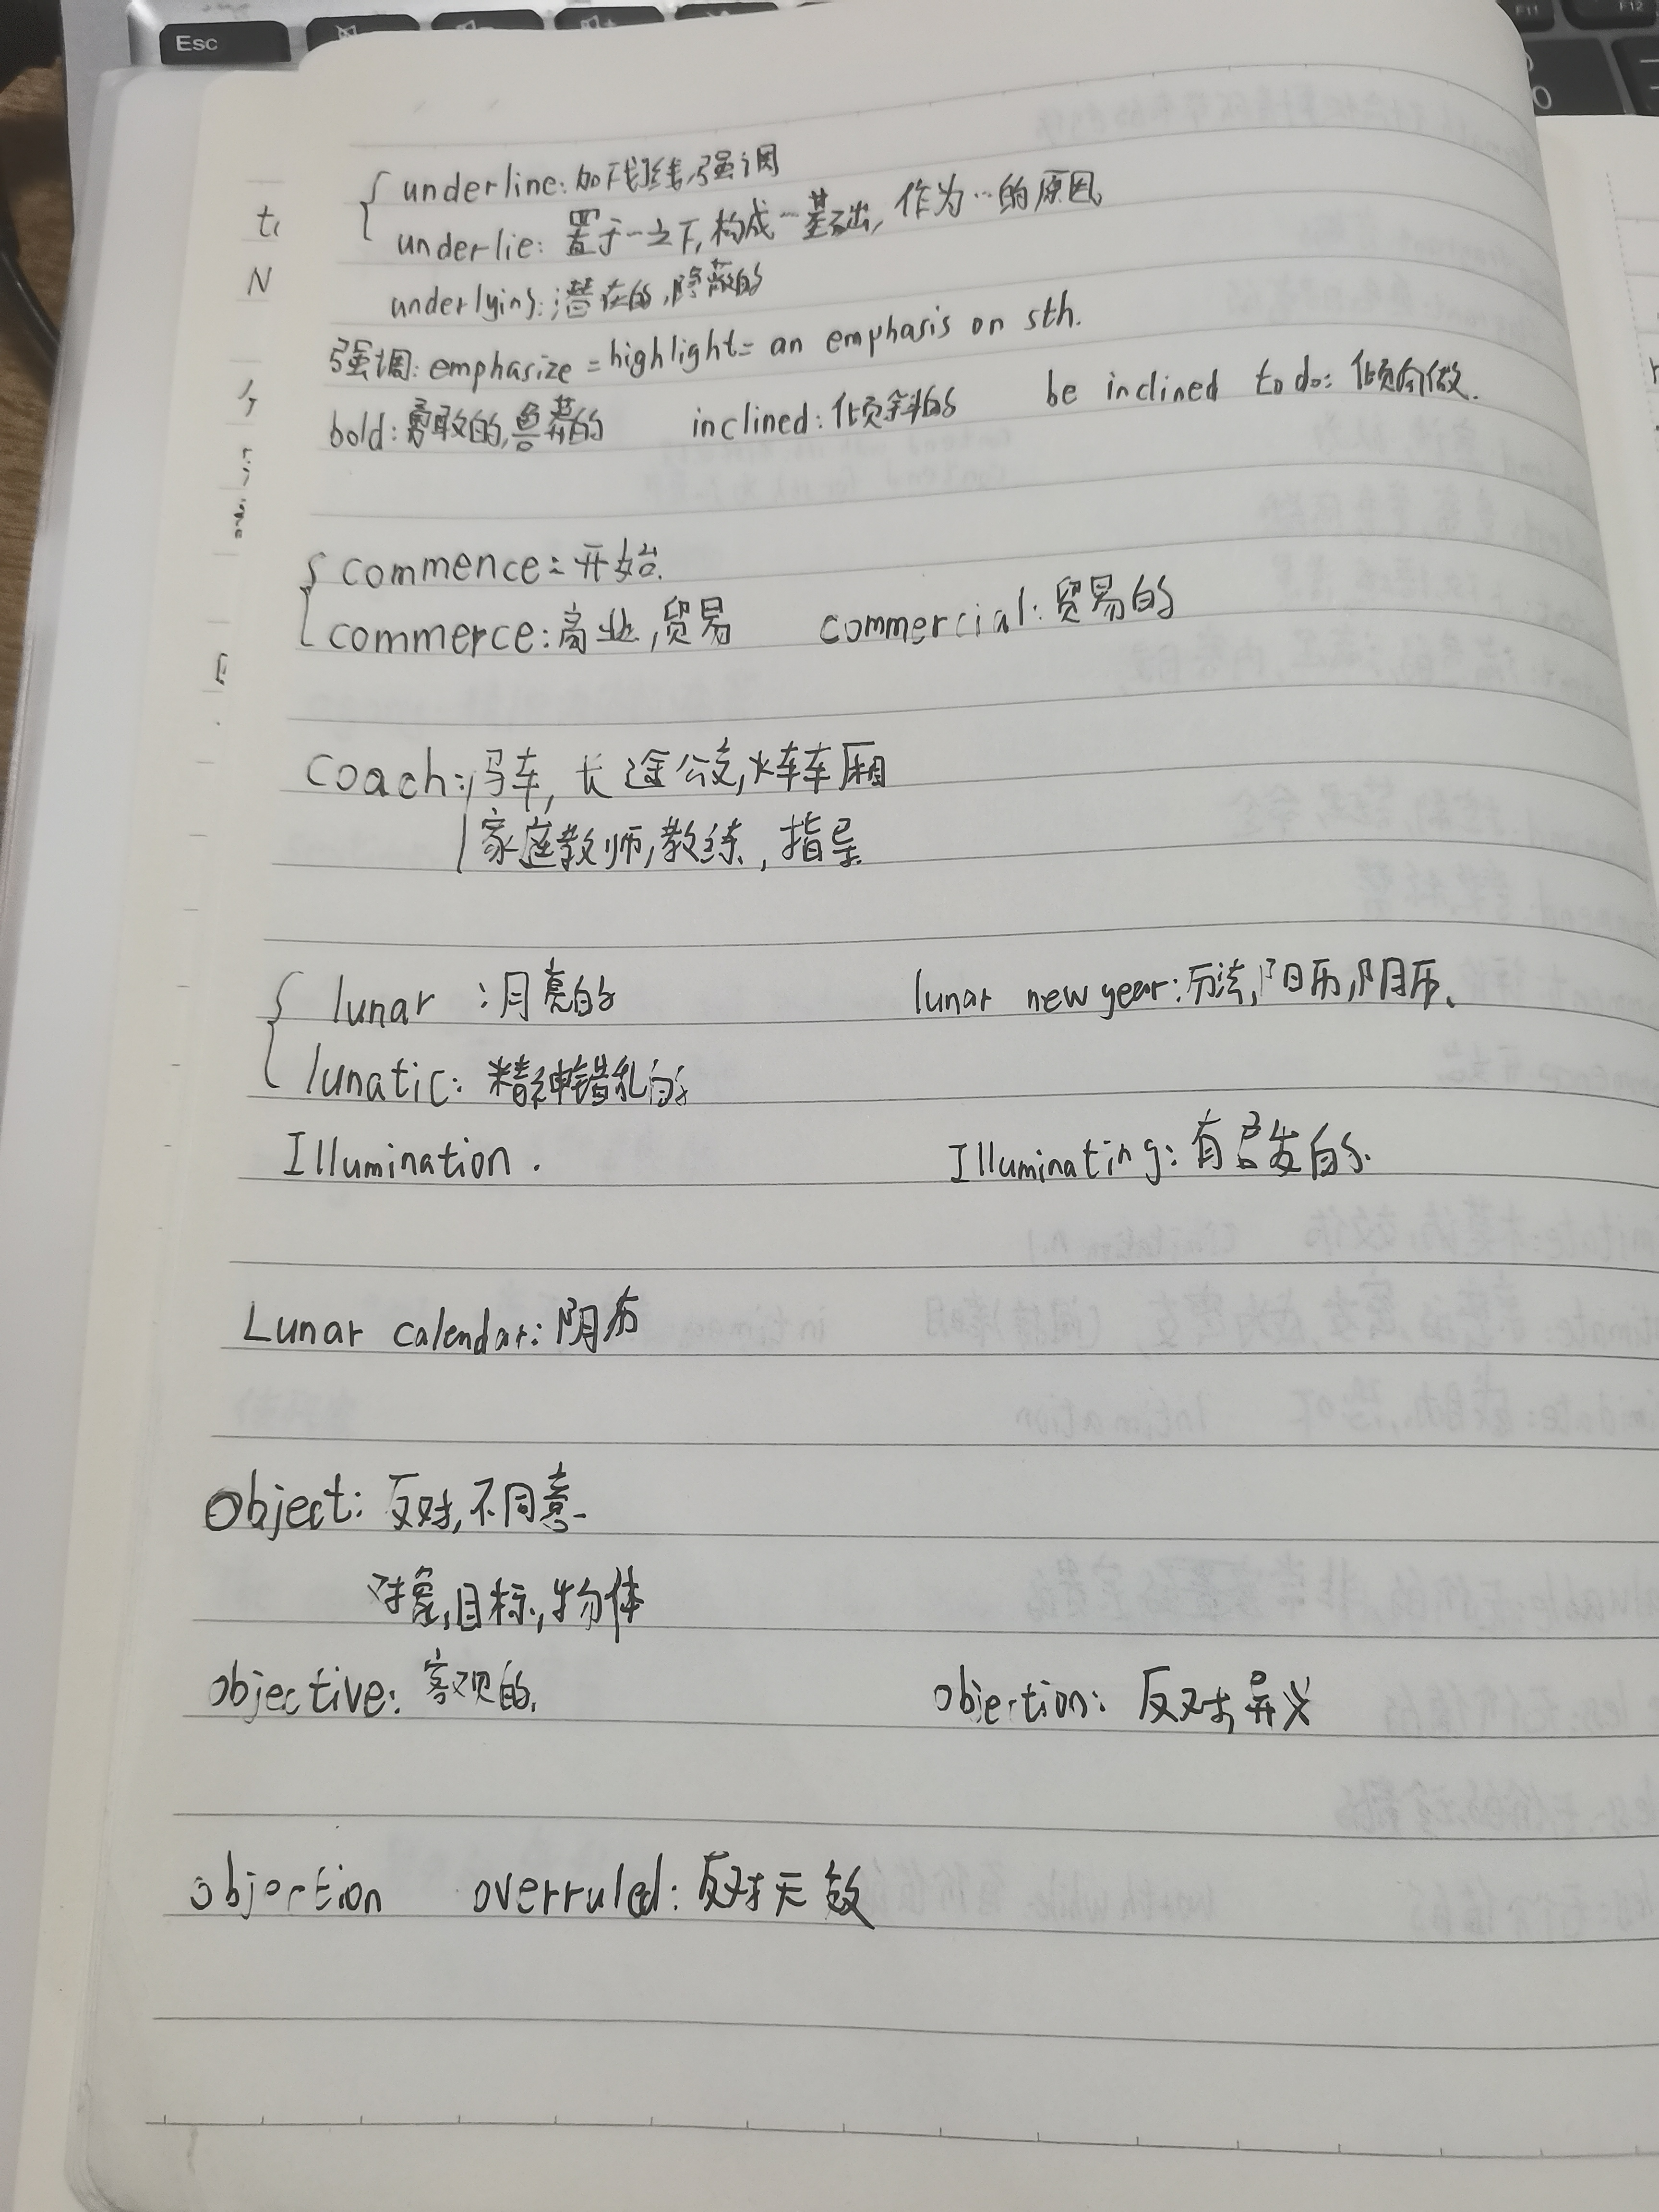 Esc
F11
F12
underline: 加下划线,强调
underlie: 置于…之下,构成…基础,作为…的原因
underlying: 潜在的,隐蔽的
强调: emphasize = highlight = an emphasis on sth.
bold: 勇敢的,鲁莽的 inclined: 倾斜的 be inclined to do: 倾向做.
commence: 开始.
commerce: 商业,贸易 commercial: 贸易的
Coach: 马车, 长途公交,火车车厢
家庭教师,教练, 指导.
lunar : 月亮的 lunar new year: 历法,阳历,阴历.
lunatic: 精神错乱的
Illumination. Illuminating: 有启发的.
Lunar calendar: 阴历
Object: 反对,不同意.
对象,目标,物体
objective: 客观的. objection: 反对,异义
objection overruled: 反对无效